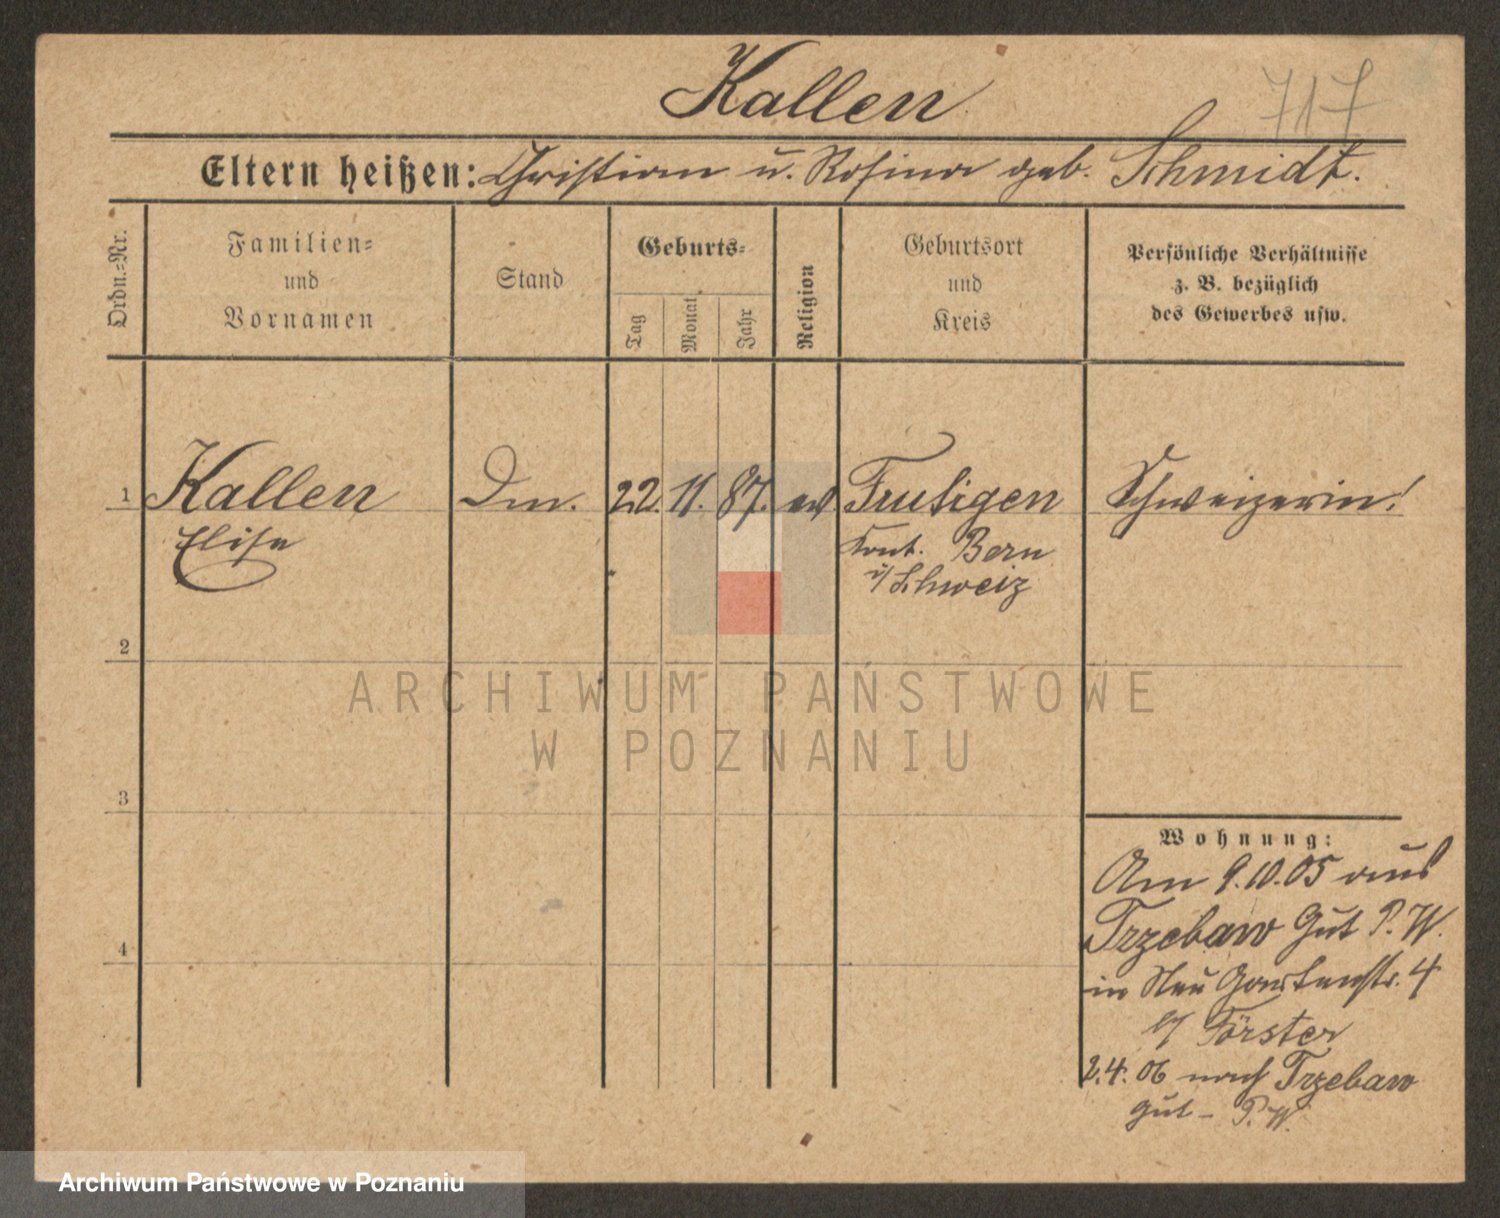 Kallen
717
Eltern heißen: Christian u. Rosina geb. Schmidt.
Ordn.=Nr.
Familien=
und
Vornamen
Stand
Geburts=
Tag
Monat
Jahr
Religion
Geburtsort
und
Kreis
Persönliche Verhältnisse
z. B. bezüglich
des Gewerbes usw.
1 Kallen 22. 11. 87. ev Frutigen Schweizerin!
Elise Kant. Bern
i/Schweiz
2
3
4
Wohnung:
Am 9.10.05 aus
Trzebaw Gut P. W.
in Neu Gartenstr. 4
b/ Förster
2.4.06 nach Trzebaw
Gut - P. W.
ARCHIWUM PAŃSTWOWE
W POZNANIU
Archiwum Państwowe w Poznaniu